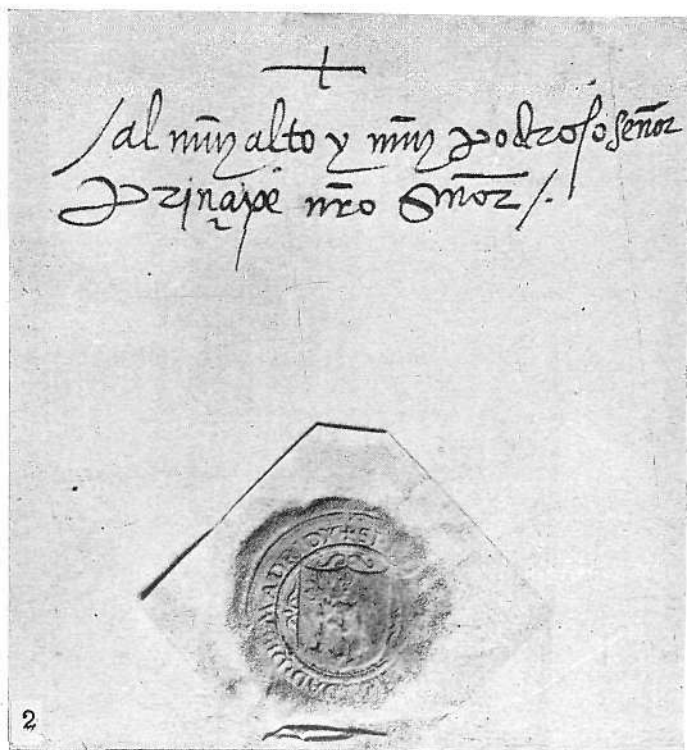 /al muy alto y muy podroso señor
prinçipe nr̃o Señor/.
MADRID
2